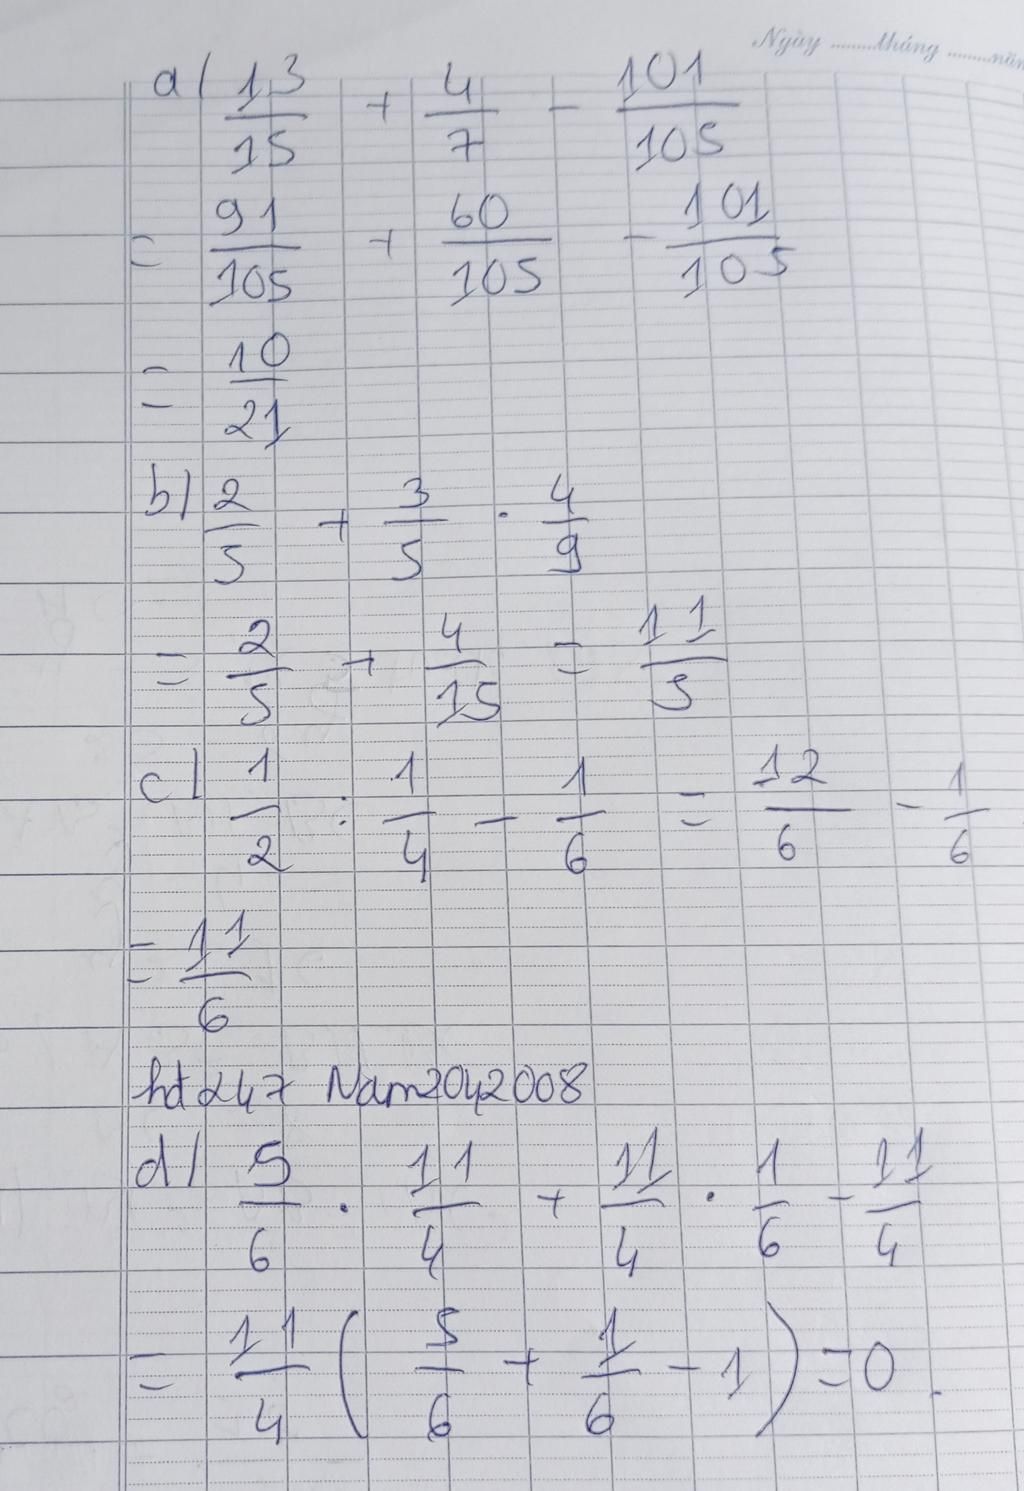 Ngày ........tháng ........năm
a/ 13/15 + 4/7 - 101/105
= 91/105 + 60/105 - 101/105
= 10/21
b/ 2/5 + 3/5 . 4/9
= 2/5 + 4/15 = 11/5
c/ 1/2 : 1/4 - 1/6 = 12/6 - 1/6
= 11/6
hd247 Nam2042008
d/ 5/6 . 11/4 + 11/4 . 1/6 - 11/4
= 11/4 ( 5/6 + 1/6 - 1 ) = 0 .